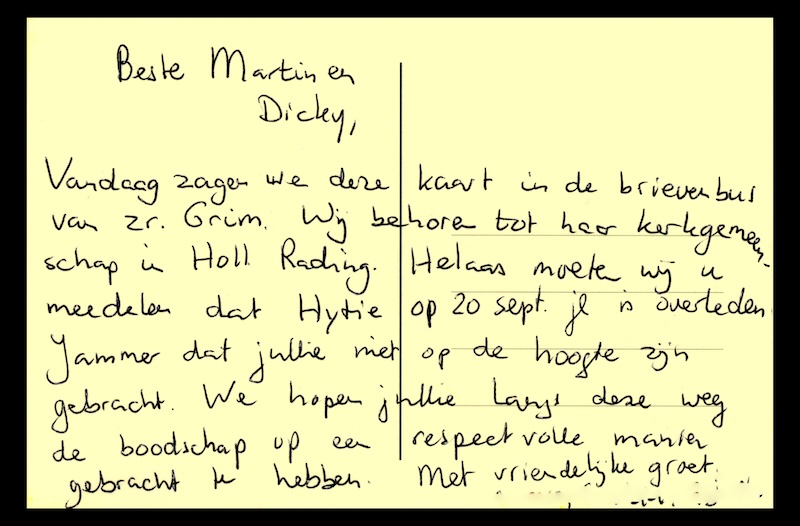 Beste Martin en
Dicky,
Vandaag zagen we deze kaart in de brievenbus
van zr. Grim. Wij behoren tot haar kerkgemeen-
schap in Holl. Rading. Helaas moeten wij u
meedelen dat Hytie op 20 sept. jl is overleden.
Jammer dat jullie niet op de hoogte zijn
gebracht. We hopen jullie langs deze weg
de boodschap op een respectvolle manier
gebracht te hebben. Met vriendelijke groet.